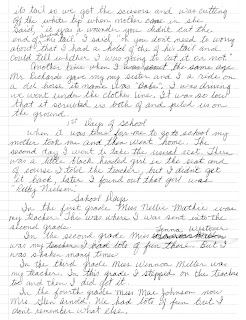 its tail so we got the scissors and was cutting
off the white tip when mother came in she
said, "it was a wonder you didn't cut the
end of the tail. I said, "you don't need to worry
about that I had a hold of the of his tail and
could tell whether I was going to cut it on not."
Another time when I was about the same age
Mr. Richards gave my my sister and I a ride on
a old horse, it name was "babe". I was driving
we went under the clothes line. I was so tall
that it scratched us both of and piled us on
the ground.
1st Days of school
When it was time for me to go to school my
mother took me and then went home. The
second day I went to take the usual seat. There
was a little black headed girl in the seat and
of course I told the teacher, but I didn't get
it back, later I found out that girl was
Ruby Nielsen.
School Days
In the first grade Miss Nellie Mathie was
my teacher. This was where I was sent into the
second grade.
In the second grade Miss Westover
was my teacher I had lots of fun there. But I
was shaken many times
In the third grade Miss Winnona Miller was
my teacher. In this grade I stepped on the teachers
toe and then I did get it.
In the fourth grade Miss Mae Johnson now
Mrs. Glen Arnold. We had lots of fun but I
dont remember what else.